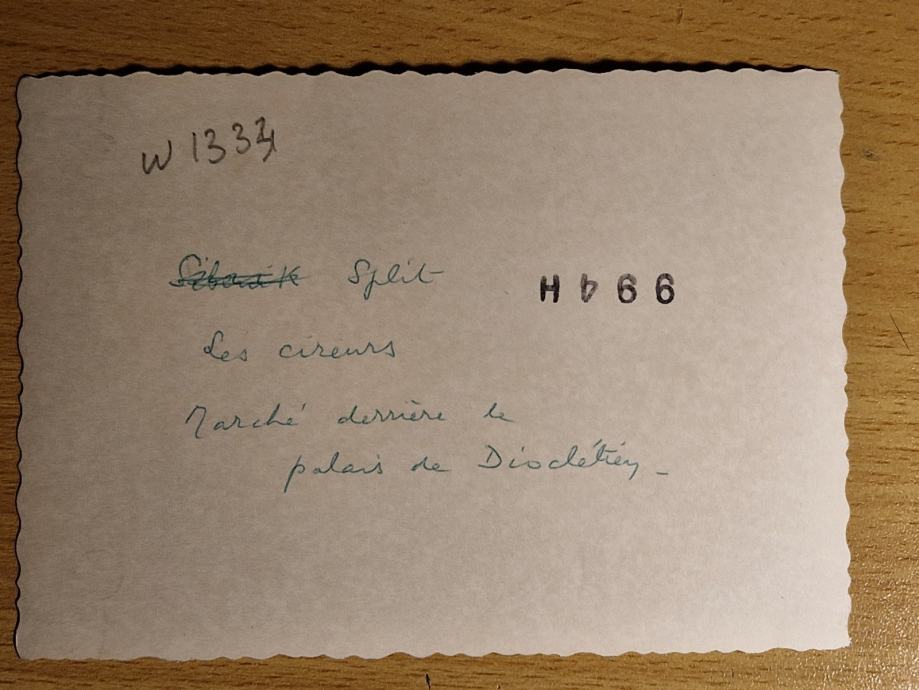 W 1334
Sibenik Split
Les cireurs
Marché derrière le
palais de Dioclétien_